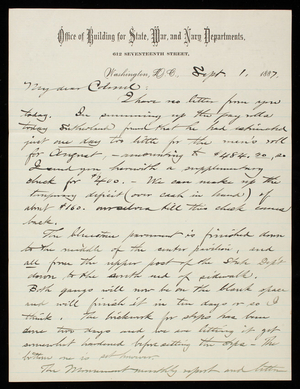 Office of Building for State, War, and Navy Departments,
612 SEVENTEENTH STREET,
Washington, D.C. Sept. 1, 1887.
My dear Colonel:
I have no letter from you
today. In summing up the pay rolls
today Sutherland found that he had estimated
just one day too little for the men's roll
for August, – amounting to $484.20, so
I send you herewith a supplementary
check for $400. – We can make up the
temporary deficit (our cash in hand) of
about $160. till this check comes
back.
The bluestone pavement is finished down
to the middle of the center pavilion, and
all from the upper post of the State Dept
down to the south end of sidewalk.
Both gangs will now be on the blank space
and will finish it in ten days or so I
think. The brickwork for steps has been
done two days and we are letting it get
somewhat hardened before setting the steps. The
bottom one is set however.
The Monument monthly report and letter